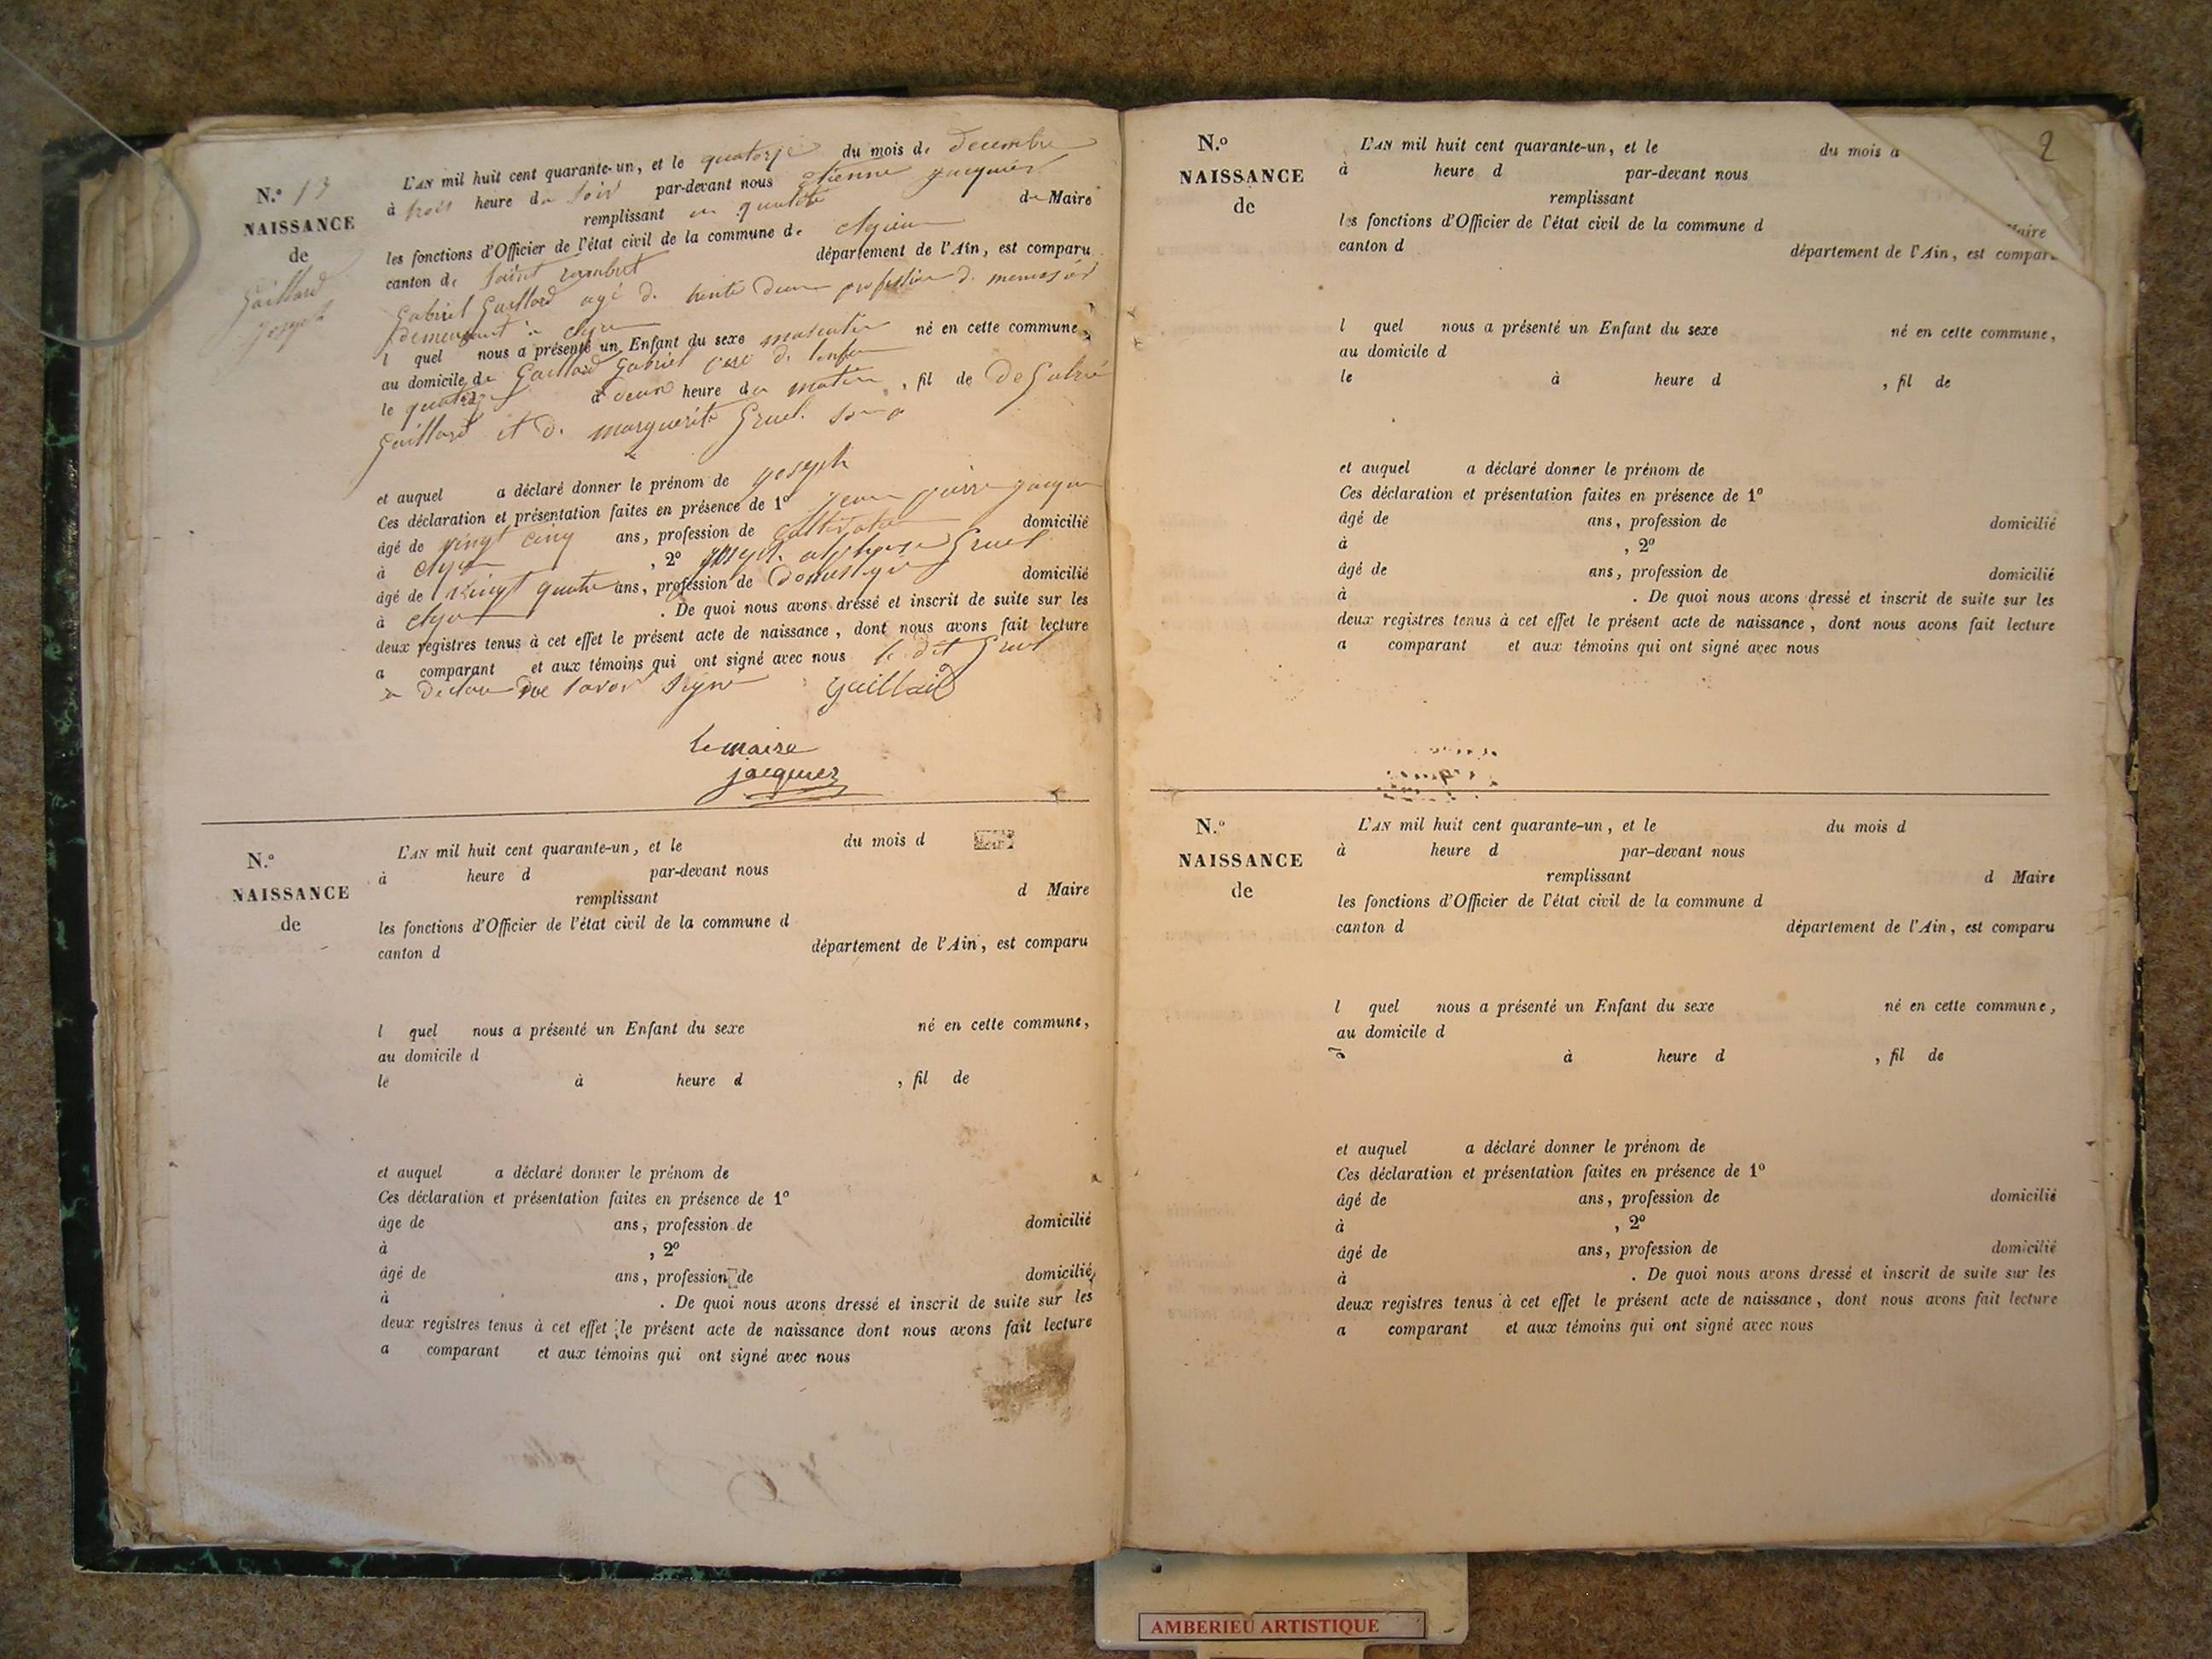 N.º 13
NAISSANCE
de
Gaillard
joseph
L'AN mil huit cent quarante-un, et le quatorze du mois de decembre
à trois heure du soir par-devant nous etienne jacquier
remplissant en qualité de Maire
les fonctions d'Officier de l'état civil de la commune de
canton de Saint rambert département de l'Ain, est comparu
Gabriel Gaillard agé de trente deux profession de menusier
demeurant à
l quel nous a présenté un Enfant du sexe masculin né en cette commune,
au domicile de Gaillard Gabriel pere de lenfan
le quatorze à deux heure du matin, fil de De Gabriel
Gaillard et de marguerite Gruel
et auquel a déclaré donner le prénom de joseph
Ces déclaration et présentation faites en présence de 1º jean pierre
âgé de vingt cinq ans, profession de cultivateur domicilié
à , 2º joseph alphonse Gruel
âgé de vingt quatre ans, profession de Domestique domicilié
à . De quoi nous avons dressé et inscrit de suite sur les
deux registres tenus à cet effet le présent acte de naissance, dont nous avons fait lecture
a comparant et aux témoins qui ont signé avec nous le dit Gruel
a declare ne savoir signe Gaillard
le maire
jacquier
N.º
NAISSANCE
de
L'AN mil huit cent quarante-un, et le du mois d
à heure d par-devant nous
remplissant d Maire
les fonctions d'Officier de l'état civil de la commune d
canton d département de l'Ain, est comparu
l quel nous a présenté un Enfant du sexe né en cette commune,
au domicile d
le à heure d , fil de
et auquel a déclaré donner le prénom de
Ces déclaration et présentation faites en présence de 1º
âge de ans, profession de domicilié
à , 2º
âgé de ans, profession de domicilié
à . De quoi nous avons dressé et inscrit de suite sur les
deux registres tenus à cet effet le présent acte de naissance dont nous avons fait lecture
a comparant et aux témoins qui ont signé avec nous
2
N.º
NAISSANCE
de
L'AN mil huit cent quarante-un, et le du mois d
à heure d par-devant nous
remplissant Maire
les fonctions d'Officier de l'état civil de la commune d
canton d département de l'Ain, est comparu
l quel nous a présenté un Enfant du sexe né en cette commune,
au domicile d
le à heure d , fil de
et auquel a déclaré donner le prénom de
Ces déclaration et présentation faites en présence de 1º
âgé de ans, profession de domicilié
à , 2º
âgé de ans, profession de domicilié
à . De quoi nous avons dressé et inscrit de suite sur les
deux registres tenus à cet effet le présent acte de naissance, dont nous avons fait lecture
a comparant et aux témoins qui ont signé avec nous
N.º
NAISSANCE
de
L'AN mil huit cent quarante-un, et le du mois d
à heure d par-devant nous
remplissant d Maire
les fonctions d'Officier de l'état civil de la commune d
canton d département de l'Ain, est comparu
l quel nous a présenté un Enfant du sexe né en cette commune,
au domicile d
à heure d , fil de
et auquel a déclaré donner le prénom de
Ces déclaration et présentation faites en présence de 1º
âgé de ans, profession de domicilié
à , 2º
âgé de ans, profession de domicilié
à . De quoi nous avons dressé et inscrit de suite sur les
deux registres tenus à cet effet le présent acte de naissance, dont nous avons fait lecture
a comparant et aux témoins qui ont signé avec nous
AMBERIEU ARTISTIQUE